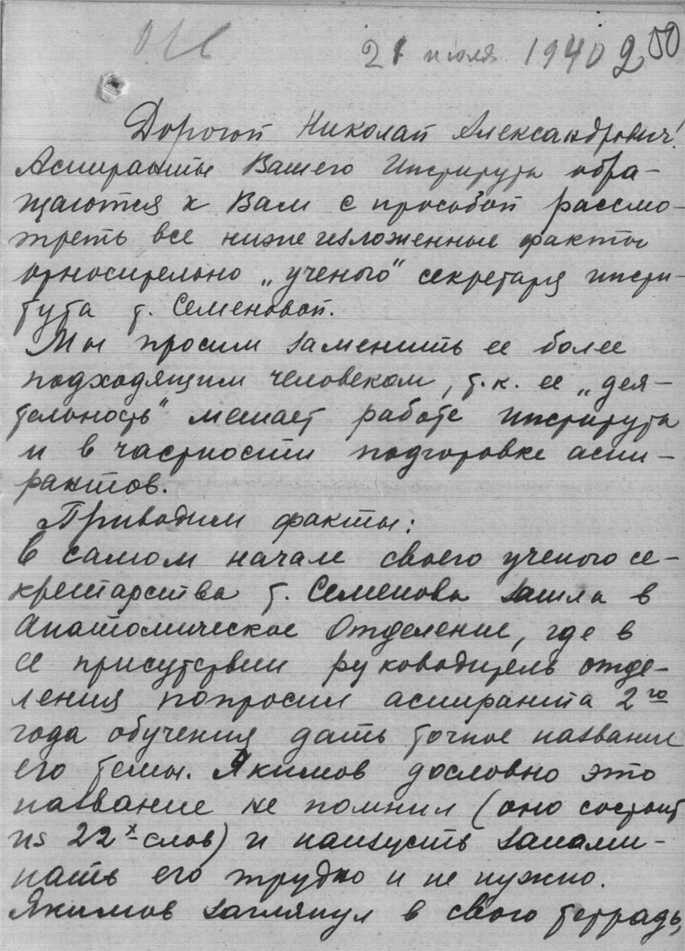 21 июля 1940 200
Дорогой Николай Александрович!
Аспиранты Вашего Института обра-
щаются к Вам с просьбой рассмо-
треть все нижеизложенные факты
относительно „ученого" секретаря инсти-
тута т. Семеновой.
Мы просим заменить ее более
подходящим человеком, т.к. ее „дея-
тельность" мешает работе института
и в частности подготовке аспи-
рантов.
Приводим факты:
В самом начале своего ученого се-
кретарства т. Семенова зашла в
Анатомическое Отделение, где в
ее присутствии руководитель отде-
ления попросил аспиранта 2го
года обучения дать точное название
его темы. Якимов дословно это
название не помнил (оно состоит
из 22х слов) и наизусть запоми-
нать его трудно и не нужно.
Якимов заглянул в свою тетрадь,